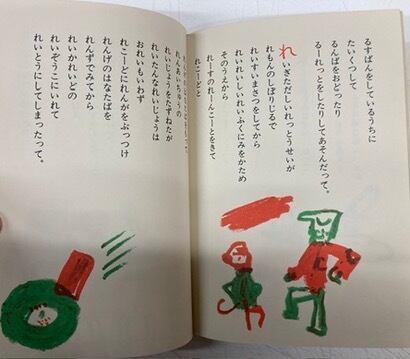 るすばんをしているうちに
たいくつして
るんばをおどったり
るーれっとをしたりしてあそんだって。
れいぎただしいれっとうせいが
れもんのしぼりじるで
れいすいまさつをしてから
れいれいしいれいふくにみをかため
そのうえから
れーすのれーんこーとをきて
れこーどと
れんあいちゅうの
れいじょうをたずねたが
れいたんなれいじょうは
おれいもいわず
れこーどにれんがをぶっつけ
れんげのはなたばを
れんずでみてから
れいかれいどの
れいぞうこにいれて
れいとうにしてしまったって。